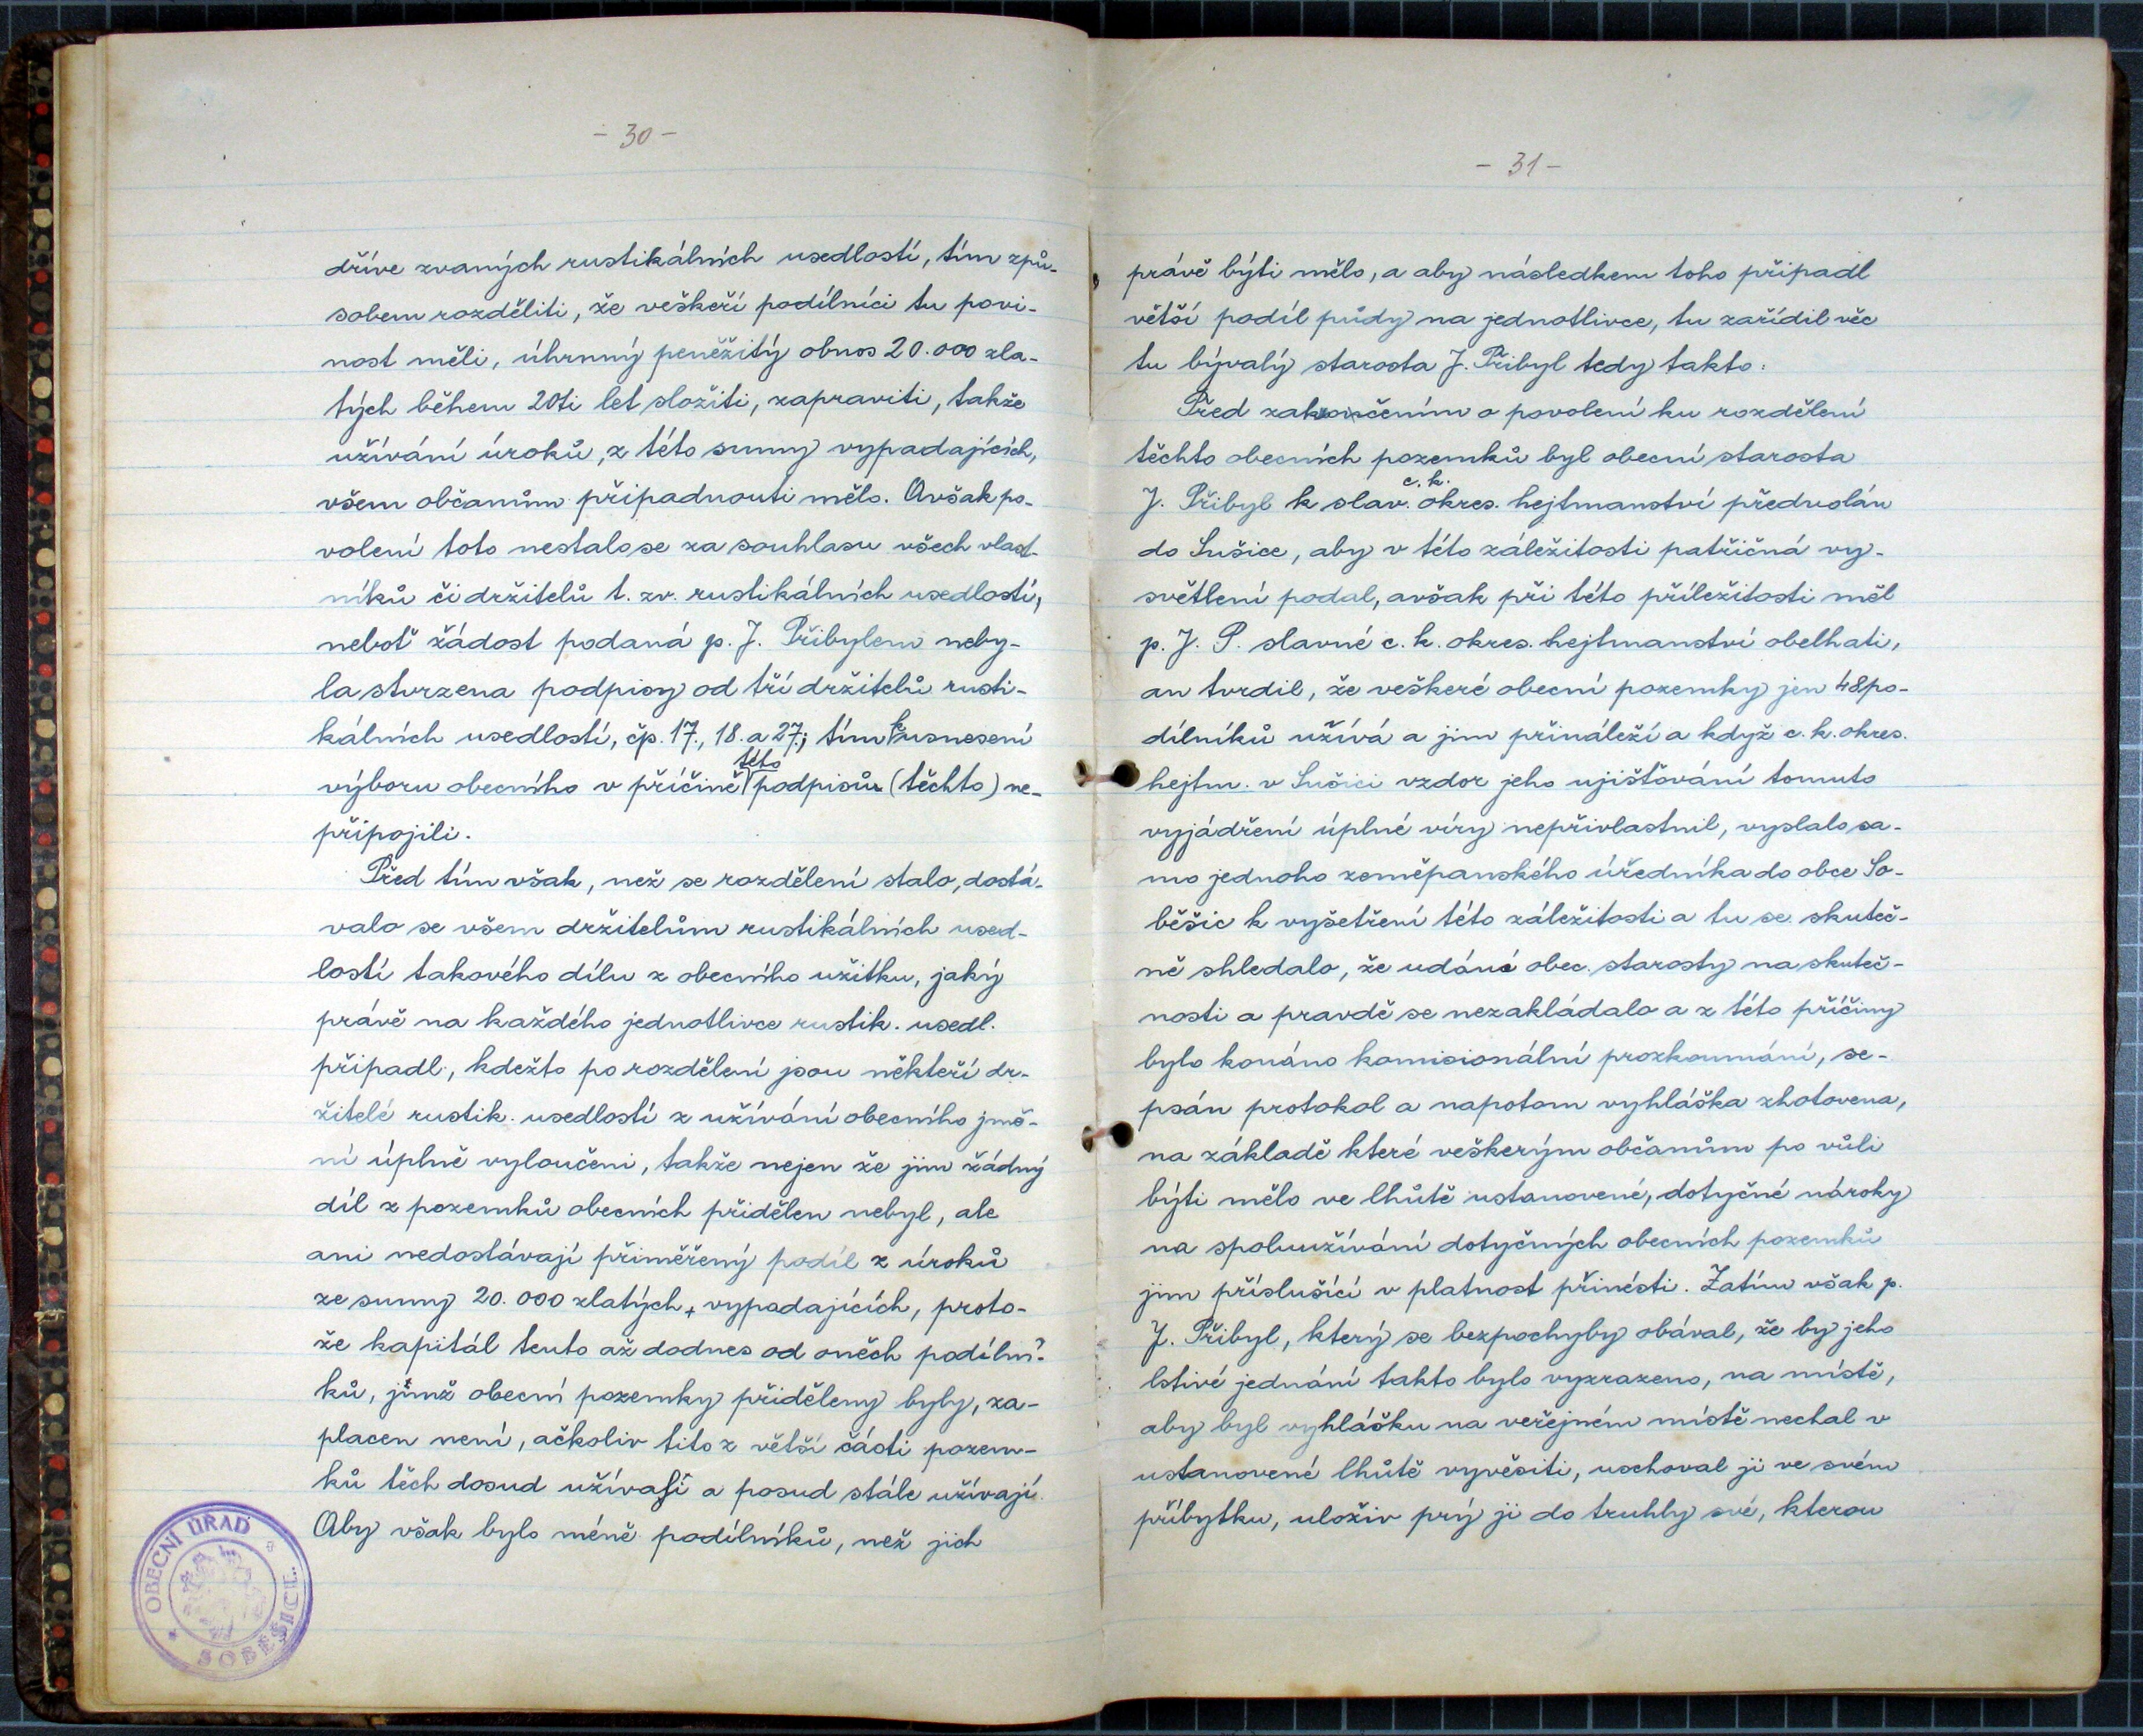 - 30 -
dříve zvaných rustikálních usedlostí, tím způ-
sobem rozděliti, že veškeří podílníci tu povi-
nost měli, úhrnný peněžitý obnos 20.000 zla-
tých během 20ti let složiti, zapraviti, takže
užívání úroků, z této sumy vypadajících,
všem občanům připadnouti mělo. Avšak po-
volení toto nestalo se za souhlasu všech vlast-
níků či držitelů t. zv. rustikálních usedlostí,
neboť žádost podaná p. J. Přibylem neby-
la stvrzena podpisy od tří držitelů rusti-
kálních usedlostí, čp. 17., 18. a 27.; tím k usnesení
výboru obecního v příčině této podpisů (těchto) ne-
připojili.
Před tím však, než se rozdělení stalo, dostá-
valo se všem držitelům rustikálních used-
lostí takového dílu z obecního užitku, jaký
právě na každého jednotlivce rustik. usedl.
připadl, kdežto po rozdělení jsou někteří dr-
žitelé rustik. usedlostí z užívání obecního jmě-
ní úplně vyloučeni, takže nejen že jim žádný
díl z pozemků obecních přidělen nebyl, ale
ani nedostávají přiměřený podíl z úroků
ze sumy 20.000 zlatých, vypadajících, proto-
že kapitál tento až dodnes od oněch podílní-
ků, jimž obecní pozemky přiděleny byly, za-
placen není, ačkoliv tito z větší části pozem-
ků těch dosud užívají a posud stále užívají.
Aby však bylo méně podílníků, než jich
OBECNÍ ÚŘAD
SOBĚŠICE
- 31 -
právě býti mělo, a aby následkem toho připadl
větší podíl půdy na jednotlivce, tu zařídil věc
tu bývalý starosta J. Přibyl tedy takto:
Před zakončením o povolení ku rozdělení
těchto obecních pozemků byl obecní starosta
J. Přibyl k slav. c. k. okres. hejtmanství předvolán
do Sušice, aby v této záležitosti patřičná vy-
světlení podal, avšak při této příležitosti měl
p. J. P. slavné c. k. okres. hejtmanství obelhati,
an tvrdil, že veškeré obecní pozemky jen 48 po-
dílníků užívá a jim přináleží a když c. k. okres.
hejtm. v Sušici vzdor jeho ujišťování tomuto
vyjádření úplné víry nepřivlastnil, vyslalo sa-
mo jednoho zeměpanského úředníka do obce So-
běšic k vyšetření této záležitosti a tu se skuteč-
ně shledalo, že udání obec. starosty na skuteč-
nosti a pravdě se nezakládalo a z této příčiny
bylo konáno komisionální prozkoumání, se-
psán protokol a napotom vyhláška zhotovena,
na základě které veškerým občanům po vůli
býti mělo ve lhůtě ustanovené, dotyčné nároky
na spoluužívání dotyčných obecních pozemků
jim příslušící v platnost přinésti. Zatím však p.
J. Přibyl, který se bezpochyby obával, že by jeho
lstivé jednání takto bylo vyzrazeno, na místě,
aby byl vyhlášku na veřejném místě nechal v
ustanovené lhůtě vyvěsiti, uschoval ji ve svém
příbytku, uloživ prý ji do truhly své, kterou